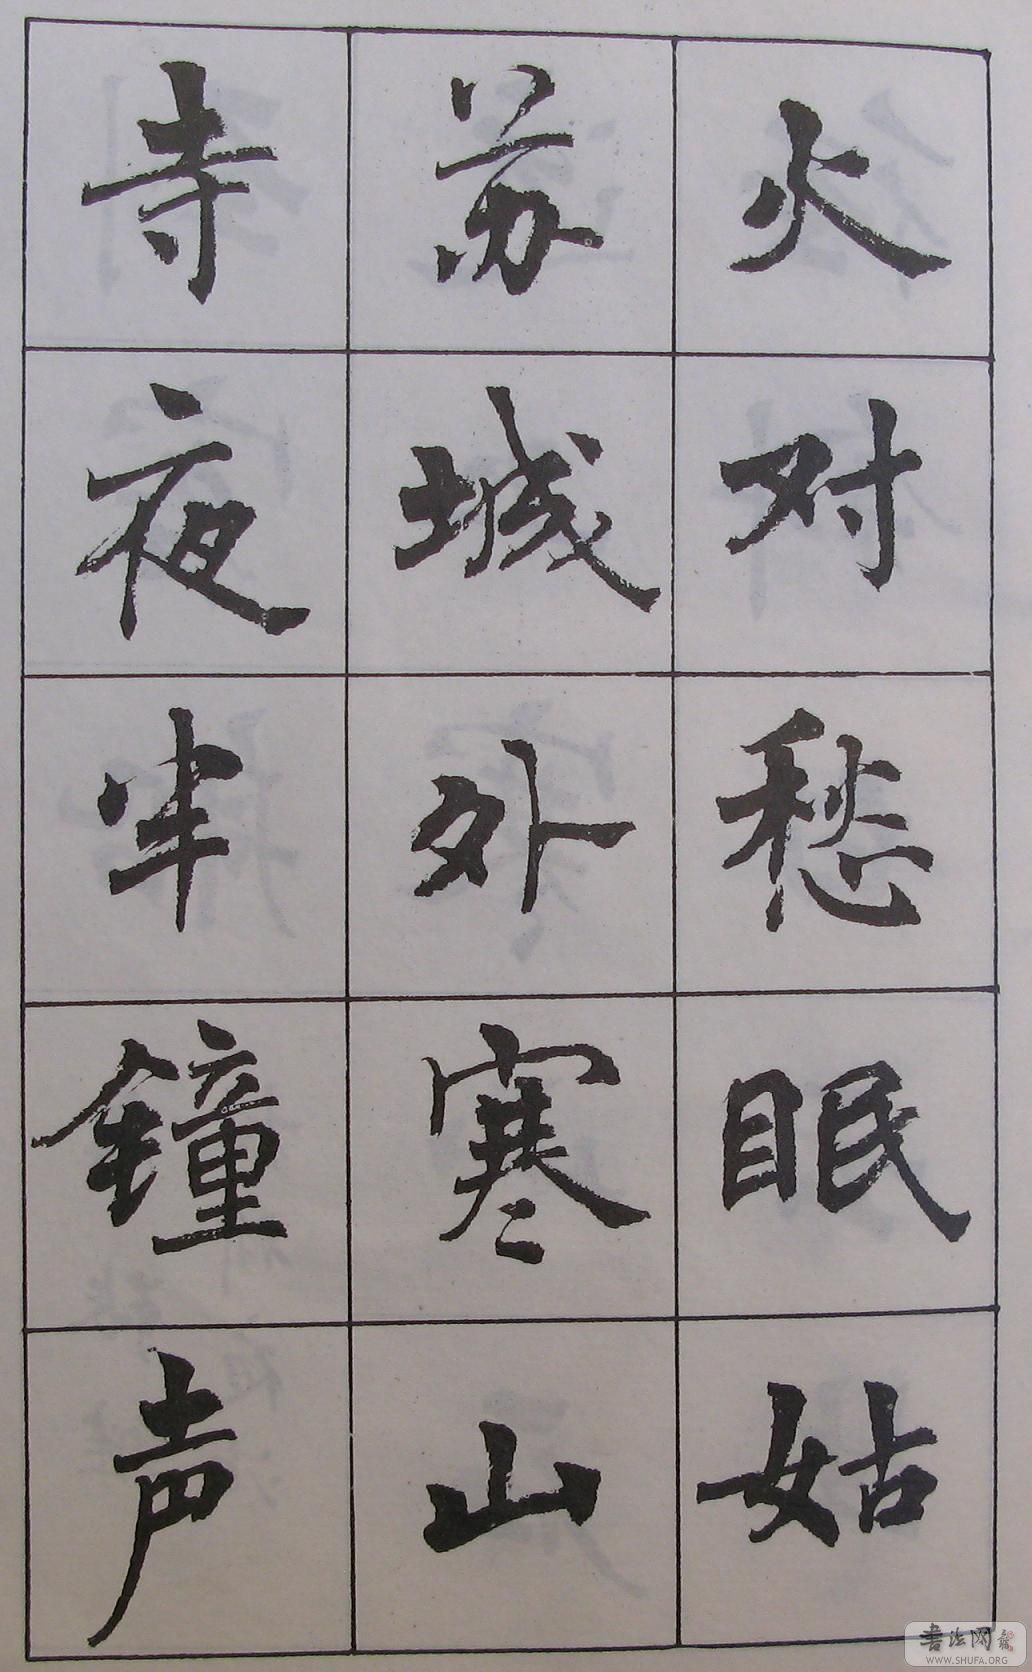 火对愁眠姑
苏城外寒山
寺夜半钟声
书法网
WWW.SHUFA.ORG